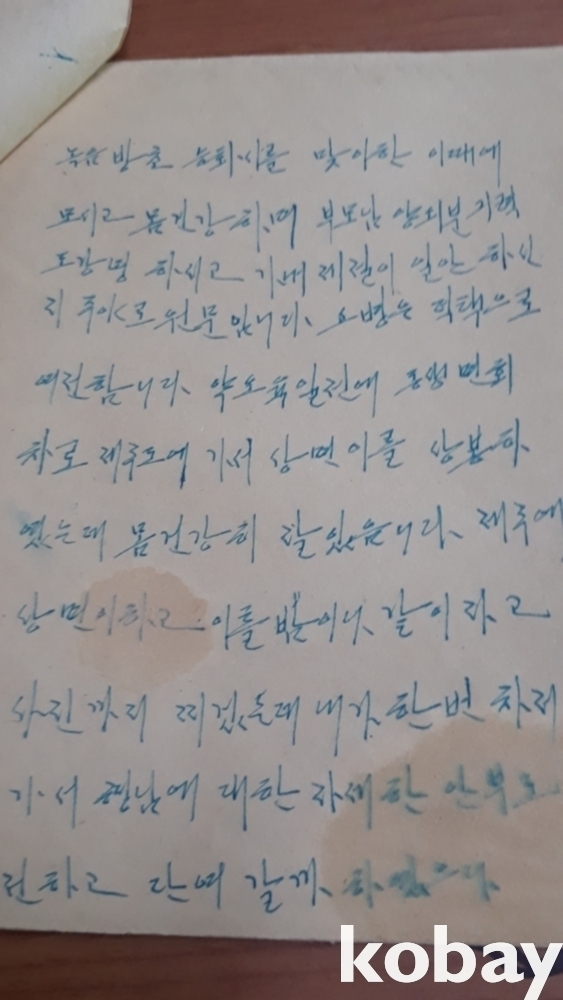 녹음방초 승회시를 맞이한 이때에
모시고 몸건강하며 부모님 양위분 기력
도강녕 하시고 가내제절이 일안 하신
지 주야로 원문입니다、 요병은 덕택으로
여전합니다、 약 오육일전에 동생면회
차로 제주도에 가서 상면이를 상봉하
였는데 몸건강히 잘있습니다、 제주에
상면이하고 이틀밤이나、 같이 자고
사진까지 찍었는데 내가、 한번 차저
가서 형님에 대한 자세한 안부도
전하고 단여 갈게、 하였으나、
kobay